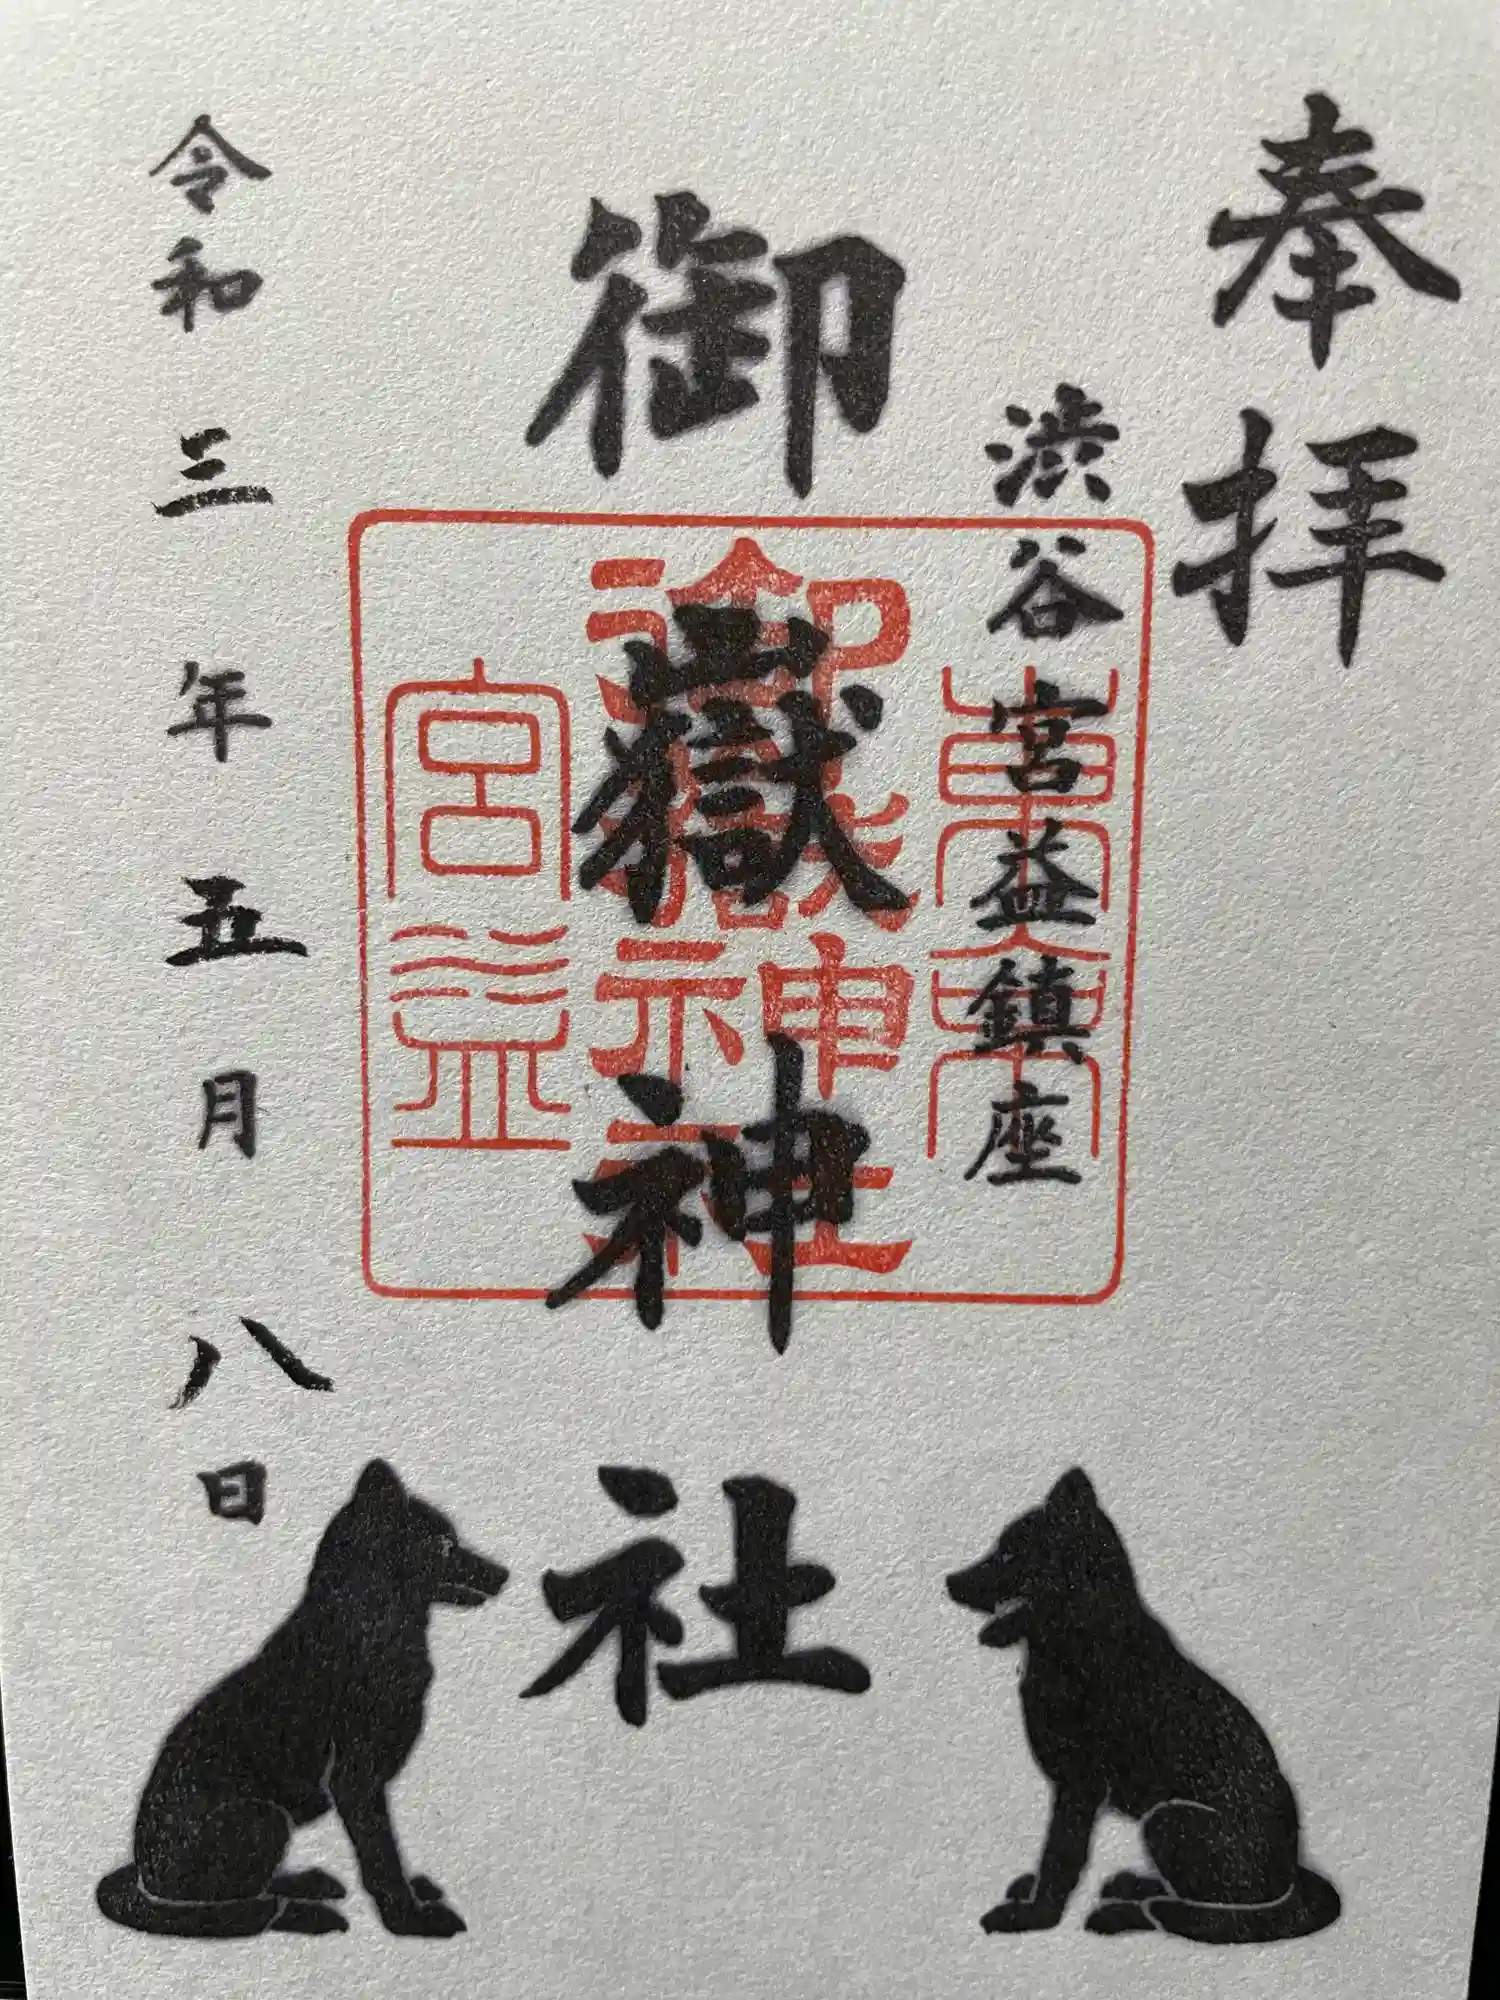 奉拝
渋谷宮益鎮座
御嶽神社
東京
御嶽神社
宮益
令和三年五月八日